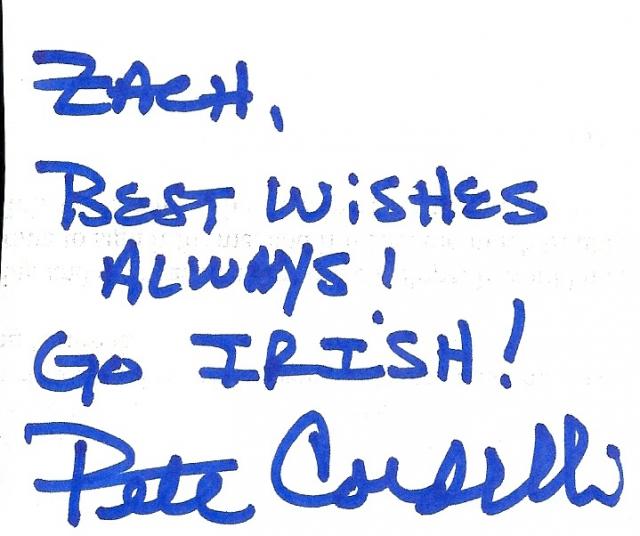 ZACH,
BEST WiSHES
ALWAYS!
GO IRISH!
Pete Cordelli